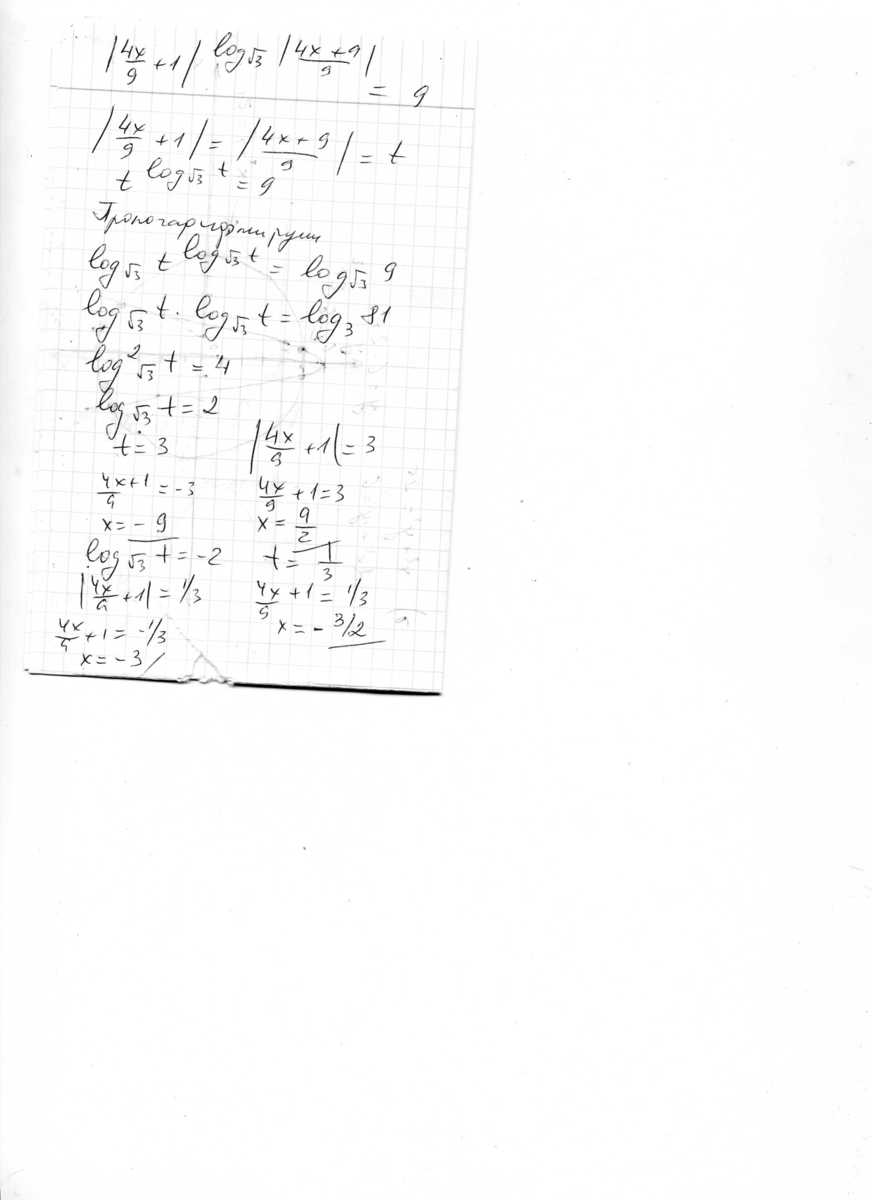 |4x/9 + 1| log√3 |4x+9/9| = 9
|4x/9 + 1| = |4x+9/9| = t
t log√3 t = 9
Прологарифмируем
log√3 t log√3 t = log√3 9
log√3 t · log√3 t = log3 81
log²√3 t = 4
log√3 t = 2
t = 3 |4x/9 + 1| = 3
4x+1/9 = -3 4x/9 + 1 = 3
x = - 9 x = 9/2
log√3 t = -2 t = 1/3
|4x/9 + 1| = 1/3 4x/9 + 1 = 1/3
4x/9 + 1 = -1/3 x = - 3/2
x = - 3